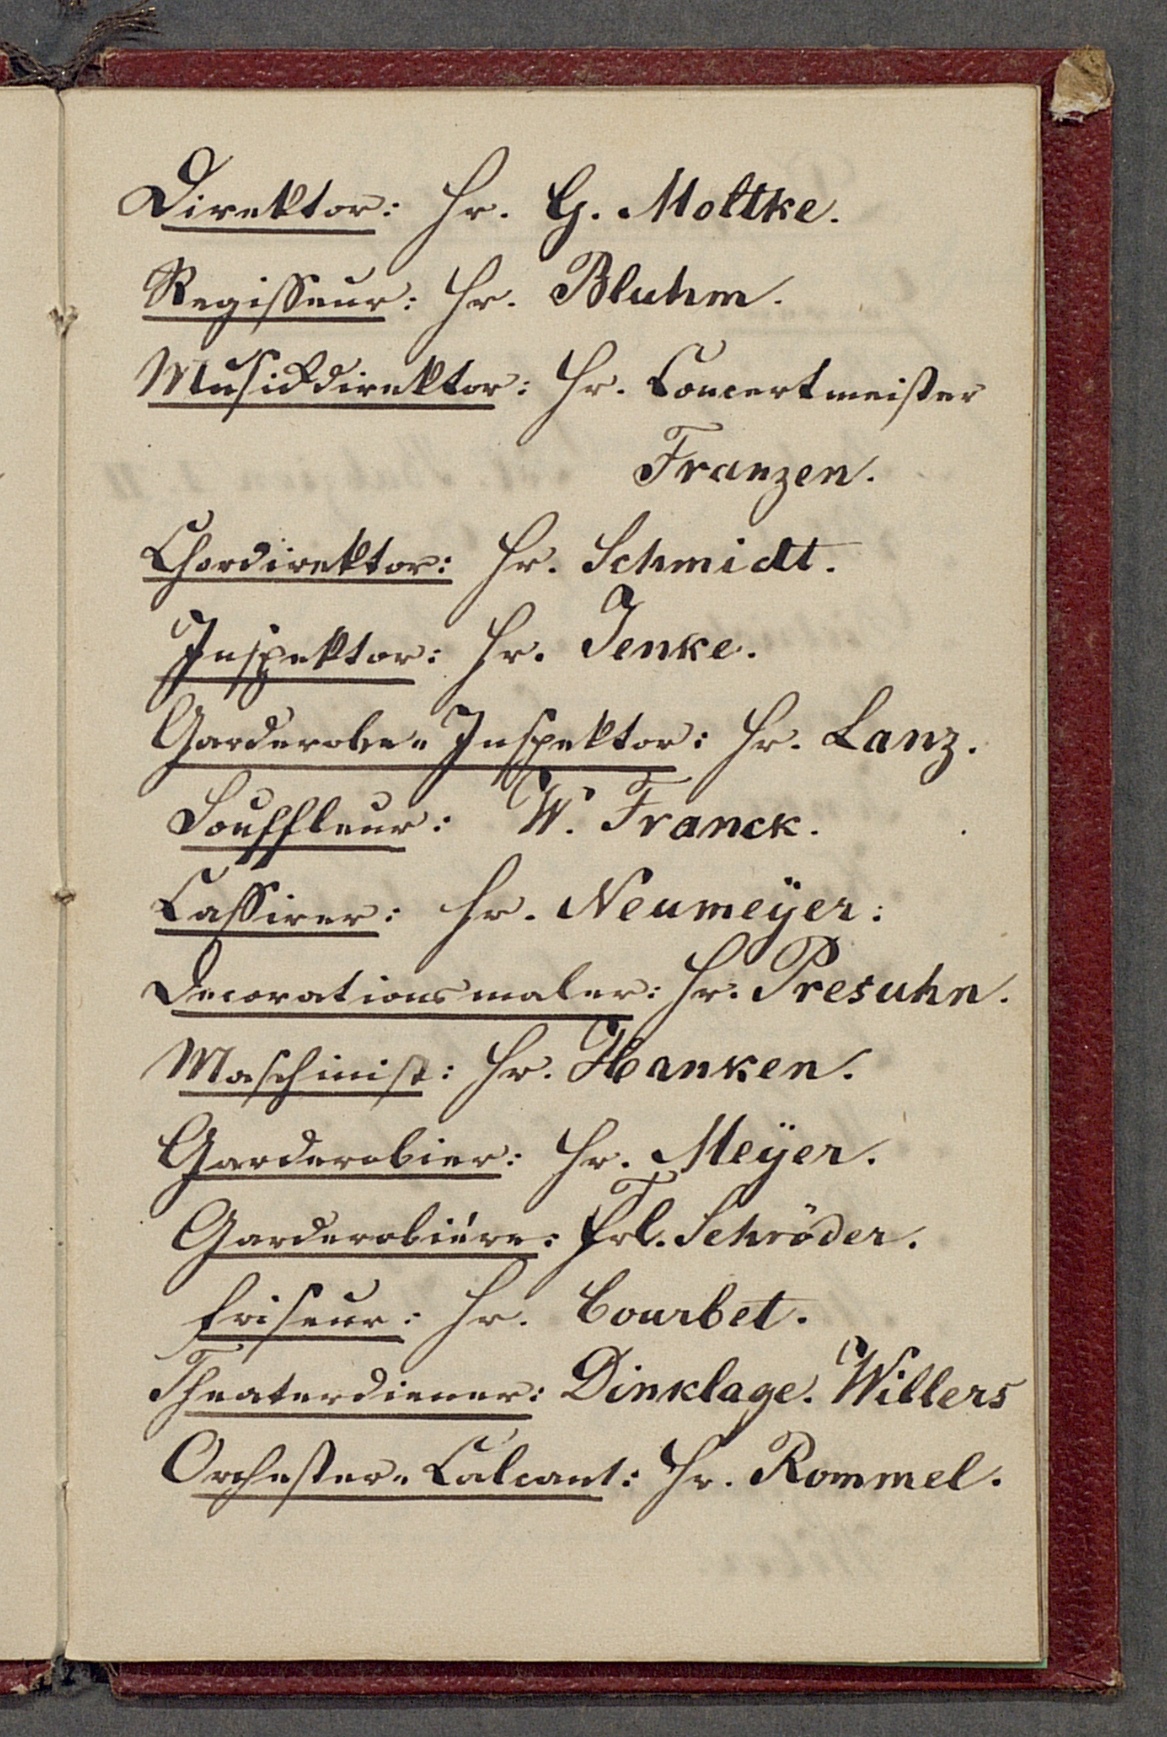 Direktor: Hr. G. Moltke.
Regisseur: Hr. Bluhm.
Musikdirektor: Hr. Concertmeister
Franzen.
Chordirektor: Hr. Schmidt.
Inspektor: Hr. Jenke.
Garderobe-Inspektor: Hr. Lanz.
Souffleur: W. Franck.
Cassirer: Hr. Neumeÿer.
Decorationsmaler: Hr. Presuhn.
Maschinist: Hr. Hanken.
Garderobier: Hr. Meÿer.
Garderobiére: Frl. Schröder.
Friseur: Hr. Courbet.
Theaterdiener: Dinklage. Willers
Orchester-Calcant: Hr. Rommel.